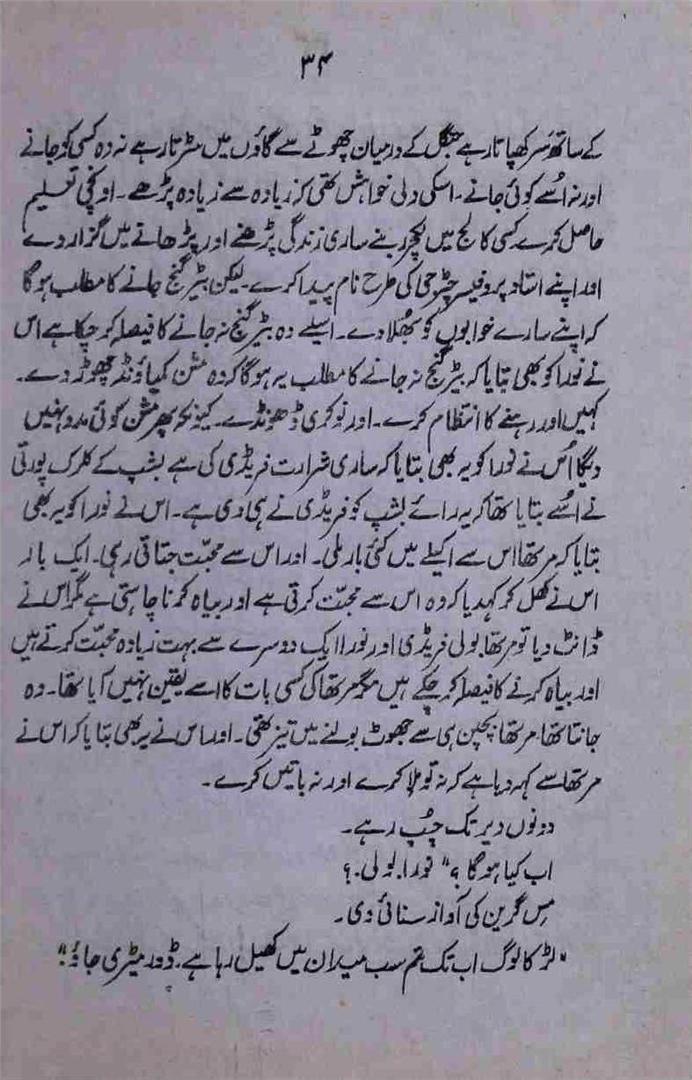 ۳۴
کے ساتھ سر کھپاتا رہے جنگل کے درمیان چھوٹے سے گاؤں میں سڑتا رہے نہ وہ کسی کو جانے
اور نہ اُسے کوئی جانے۔ اسکی دلی خواہش تھی کہ زیادہ سے زیادہ پڑھے۔ اونچی تعلیم
حاصل کرے کسی کالج میں لکچرر بنے ساری زندگی پڑھنے اور پڑھانے میں گزار دے
اور اپنے استاد پروفیسر چٹرجی کی طرح نام پیدا کرے۔ لیکن بٹیر گنج جانے کا مطلب ہوگا
کہ اپنے سارے خوابوں کو بھُلا دے۔ اسلیے وہ بٹیر گنج نہ جانے کا فیصلہ کر چکا ہے اس
نے نورا کو بھی بتایا کہ بٹیر گنج نہ جانے کا مطلب یہ ہوگا کہ وہ مشن کمپاؤنڈ چھوڑ دے۔
کہیں اور رہنے کا انتظام کرے۔ اور نوکری ڈھونڈے۔ کیونکہ پھر مشن کوئی مدد نہیں
دیگا اُس نے نورا کو یہ بھی بتایا کہ ساری شرارت فریڈی کی ہے بشپ کے کلرک پورتی
نے اُسے بتایا تھا کہ یہ رائے بشپ کو فریڈی نے ہی دی ہے۔ اس نے نورا کو یہ بھی
بتایا کہ مرتھا اس سے اکیلے میں کئی بار ملی۔ اور اس سے محبّت جتاتی رہی۔ ایک بار
اس نے کھل کر کہدیا کہ وہ اس سے محبّت کرتی ہے اور بیاہ کرنا چاہتی ہے مگر اس نے
ڈانٹ دیا تو مرتھا بولی فریڈی اور نورا ایک دوسرے سے بہت زیادہ محبّت کرتے ہیں
اور بیاہ کرنے کا فیصلہ کر چکے ہیں مگر مرتھا کی کسی بات کا اسے یقین نہیں آیا تھا۔ وہ
جانتا تھا، مرتھا بچپن ہی سے جھوٹ بولنے میں تیز تھی۔ اور اس نے یہ بھی بتایا کہ اس نے
مرتھا سے کہہ دیا ہے کہ نہ تو ملا کرے اور نہ باتیں کرے۔
دونوں دیر تک چُپ رہے۔
اب کیا ہوگا؟" نورا بولی۔؟
مِس گرین کی آواز سنائی دی۔
"لڑکا لوگ اب تک تم سب میدان میں کھیل رہا ہے۔ ڈورمیٹری جاؤ!"